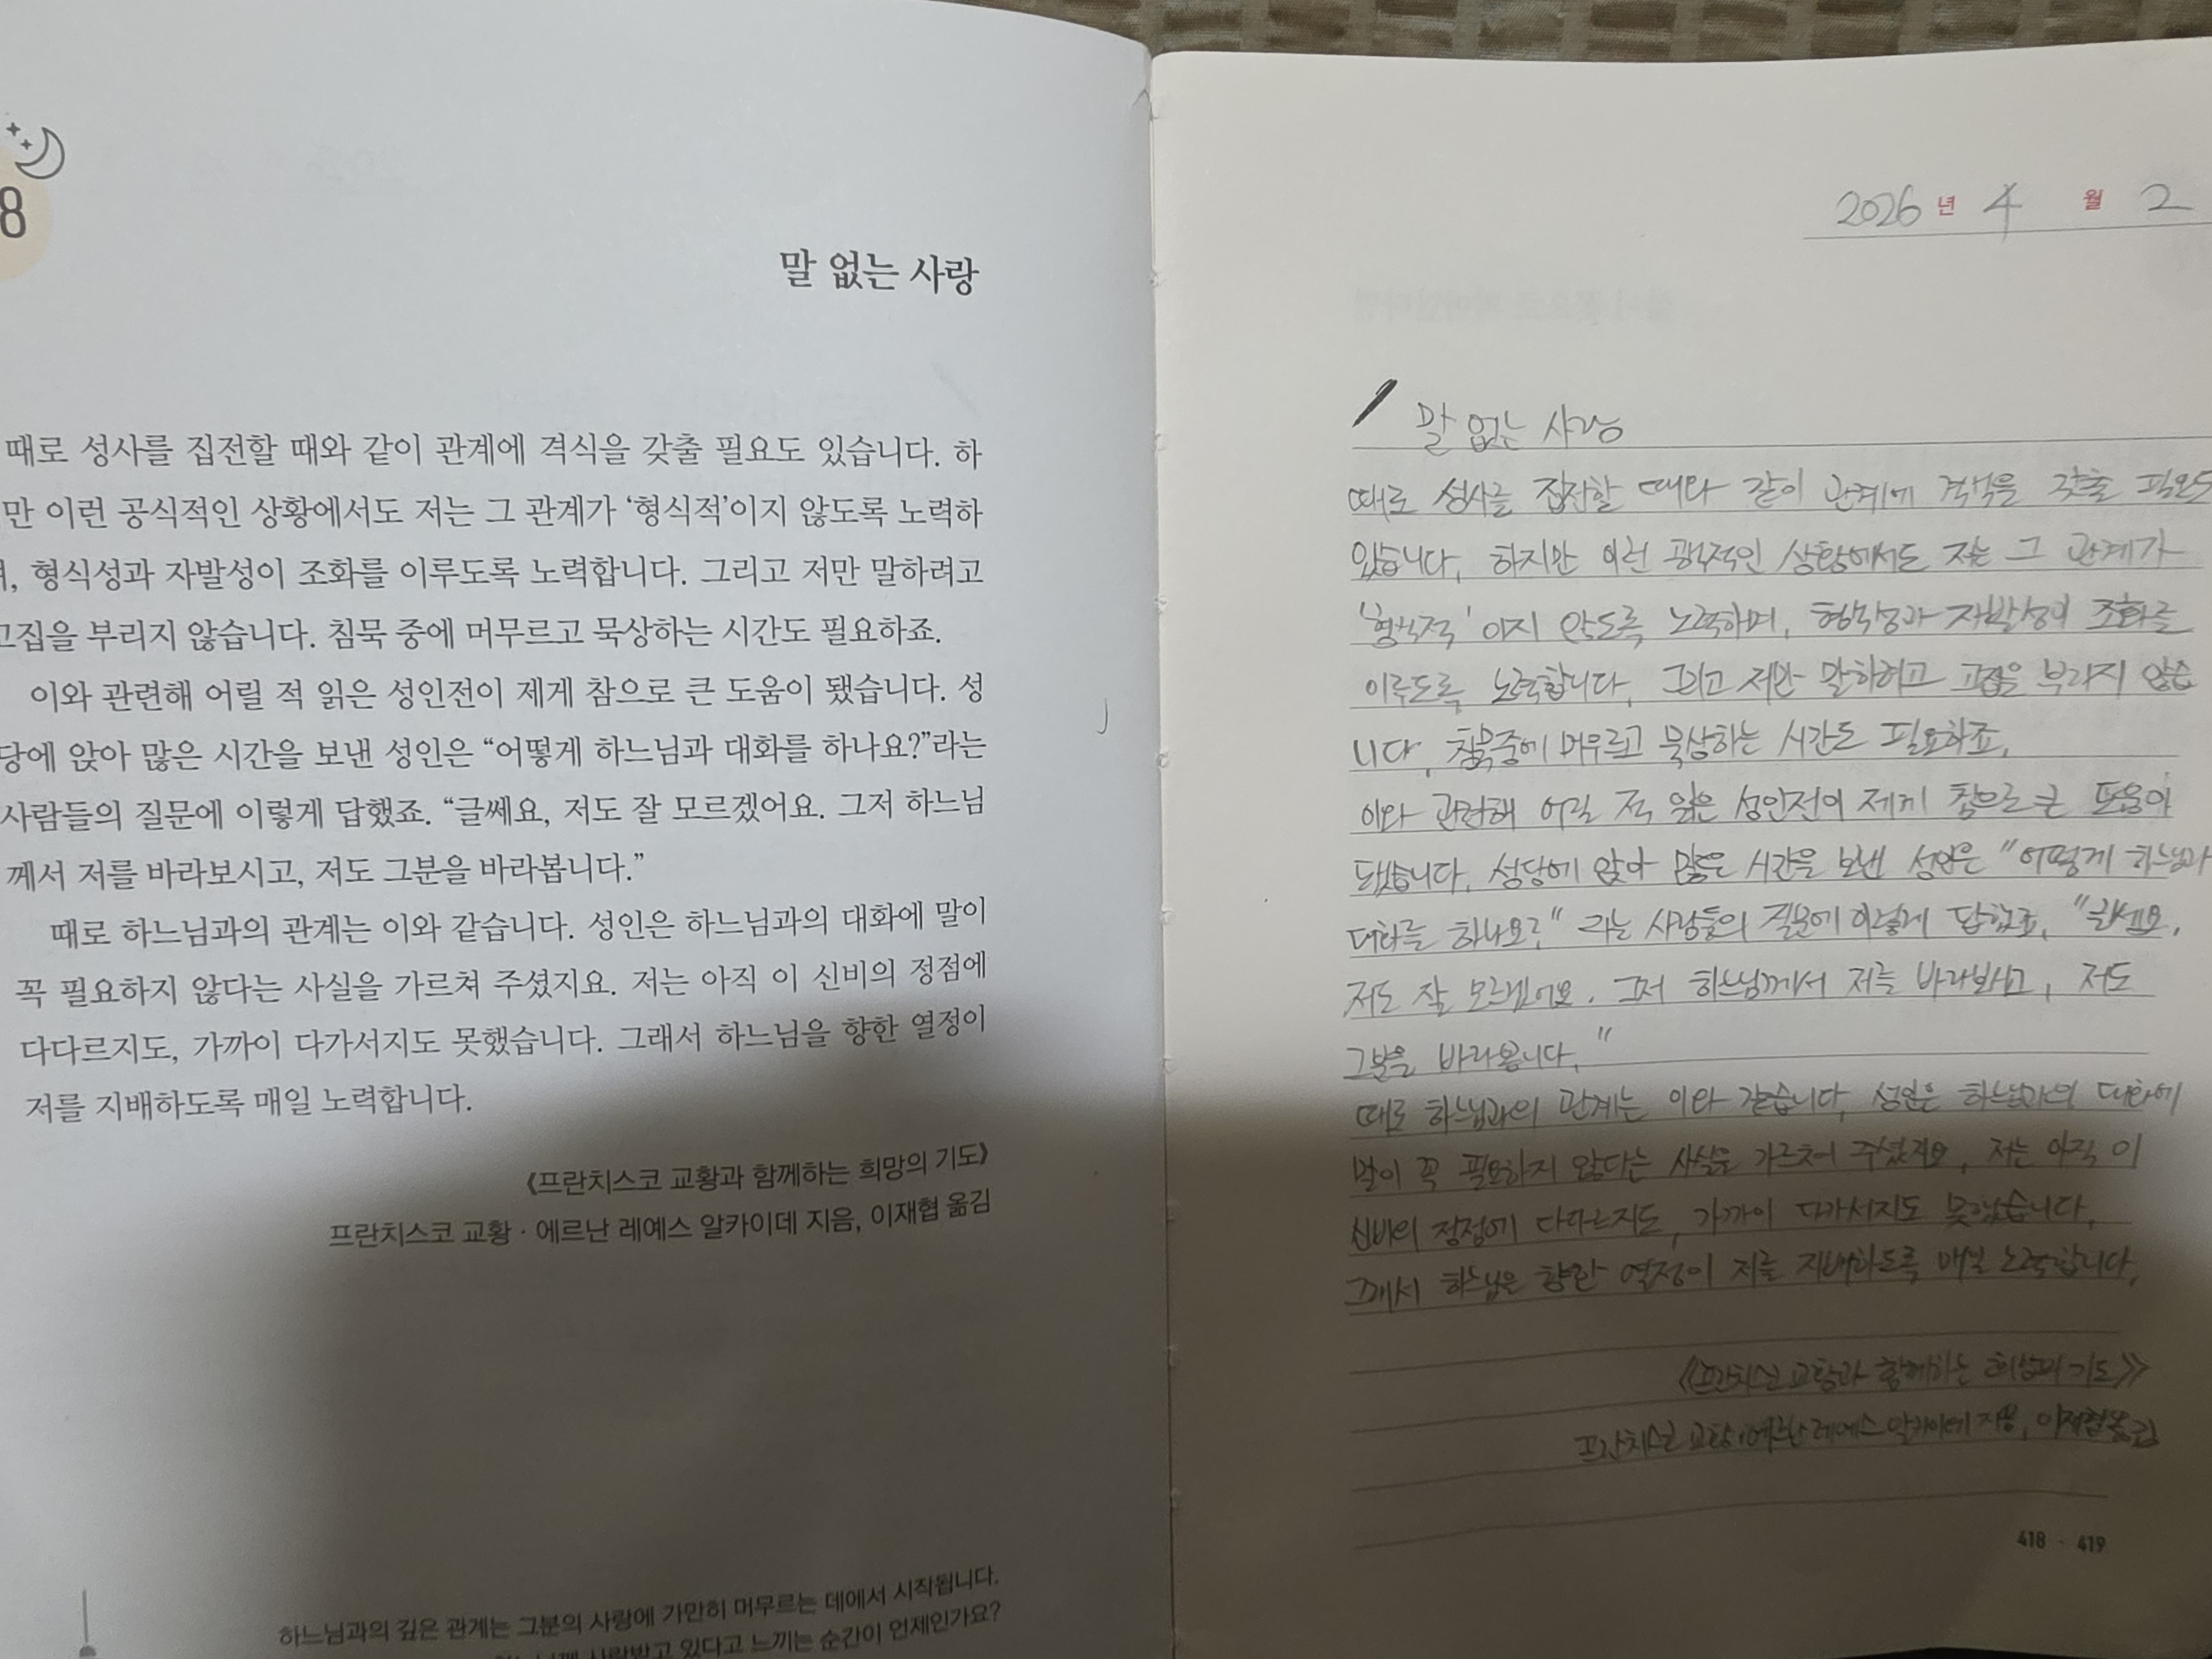 8
말 없는 사랑
때로 성사를 집전할 때와 같이 관계에 격식을 갖출 필요도 있습니다. 하
만 이런 공식적인 상황에서도 저는 그 관계가 ‘형식적’이지 않도록 노력하
, 형식성과 자발성이 조화를 이루도록 노력합니다. 그리고 저만 말하려고
고집을 부리지 않습니다. 침묵 중에 머무르고 묵상하는 시간도 필요하죠.
이와 관련해 어릴 적 읽은 성인전이 제게 참으로 큰 도움이 됐습니다. 성
당에 앉아 많은 시간을 보낸 성인은 “어떻게 하느님과 대화를 하나요?”라는
사람들의 질문에 이렇게 답했죠. “글쎄요, 저도 잘 모르겠어요. 그저 하느님
께서 저를 바라보시고, 저도 그분을 바라봅니다.”
때로 하느님과의 관계는 이와 같습니다. 성인은 하느님과의 대화에 말이
꼭 필요하지 않다는 사실을 가르쳐 주셨지요. 저는 아직 이 신비의 정점에
다다르지도, 가까이 다가서지도 못했습니다. 그래서 하느님을 향한 열정이
저를 지배하도록 매일 노력합니다.
《프란치스코 교황과 함께하는 희망의 기도》
프란치스코 교황 · 에르난 레예스 알카이데 지음, 이재협 옮김
하느님과의 깊은 관계는 그분의 사랑에 가만히 머무르는 데에서 시작됩니다.
사랑받고 있다고 느끼는 순간이 언제인가요?
2026 년 4 월 2
말 없는 사랑
때로 성사를 집전할 때와 같이 관계에 격식을 갖출 필요도
있습니다. 하지만 이런 공식적인 상황에서도 저는 그 관계가
'형식적'이지 않도록 노력하며, 형식성과 자발성이 조화를
이루도록 노력합니다. 그리고 저만 말하려고 고집을 부리지 않습
니다. 침묵중에 머무르고 묵상하는 시간도 필요하죠.
이와 관련해 어릴 적 읽은 성인전이 제게 참으로 큰 도움이
됐습니다. 성당에 앉아 많은 시간을 보낸 성인은 "어떻게 하느님과
대화를 하나요?" 라는 사람들의 질문에 이렇게 답했죠. "글쎄요,
저도 잘 모르겠어요. 그저 하느님께서 저를 바라보시고, 저도
그분을 바라봅니다."
때로 하느님과의 관계는 이와 같습니다. 성인은 하느님과의 대화에
말이 꼭 필요하지 않다는 사실을 가르쳐 주셨지요. 저는 아직 이
신비의 정점에 다다르지도, 가까이 다가서지도 못했습니다.
그래서 하느님을 향한 열정이 저를 지배하도록 매일 노력합니다.
《프란치스코 교황과 함께하는 희망의 기도》
프란치스코 교황·에르난 레예스 알카이데 지음, 이재협 옮김
418 · 419